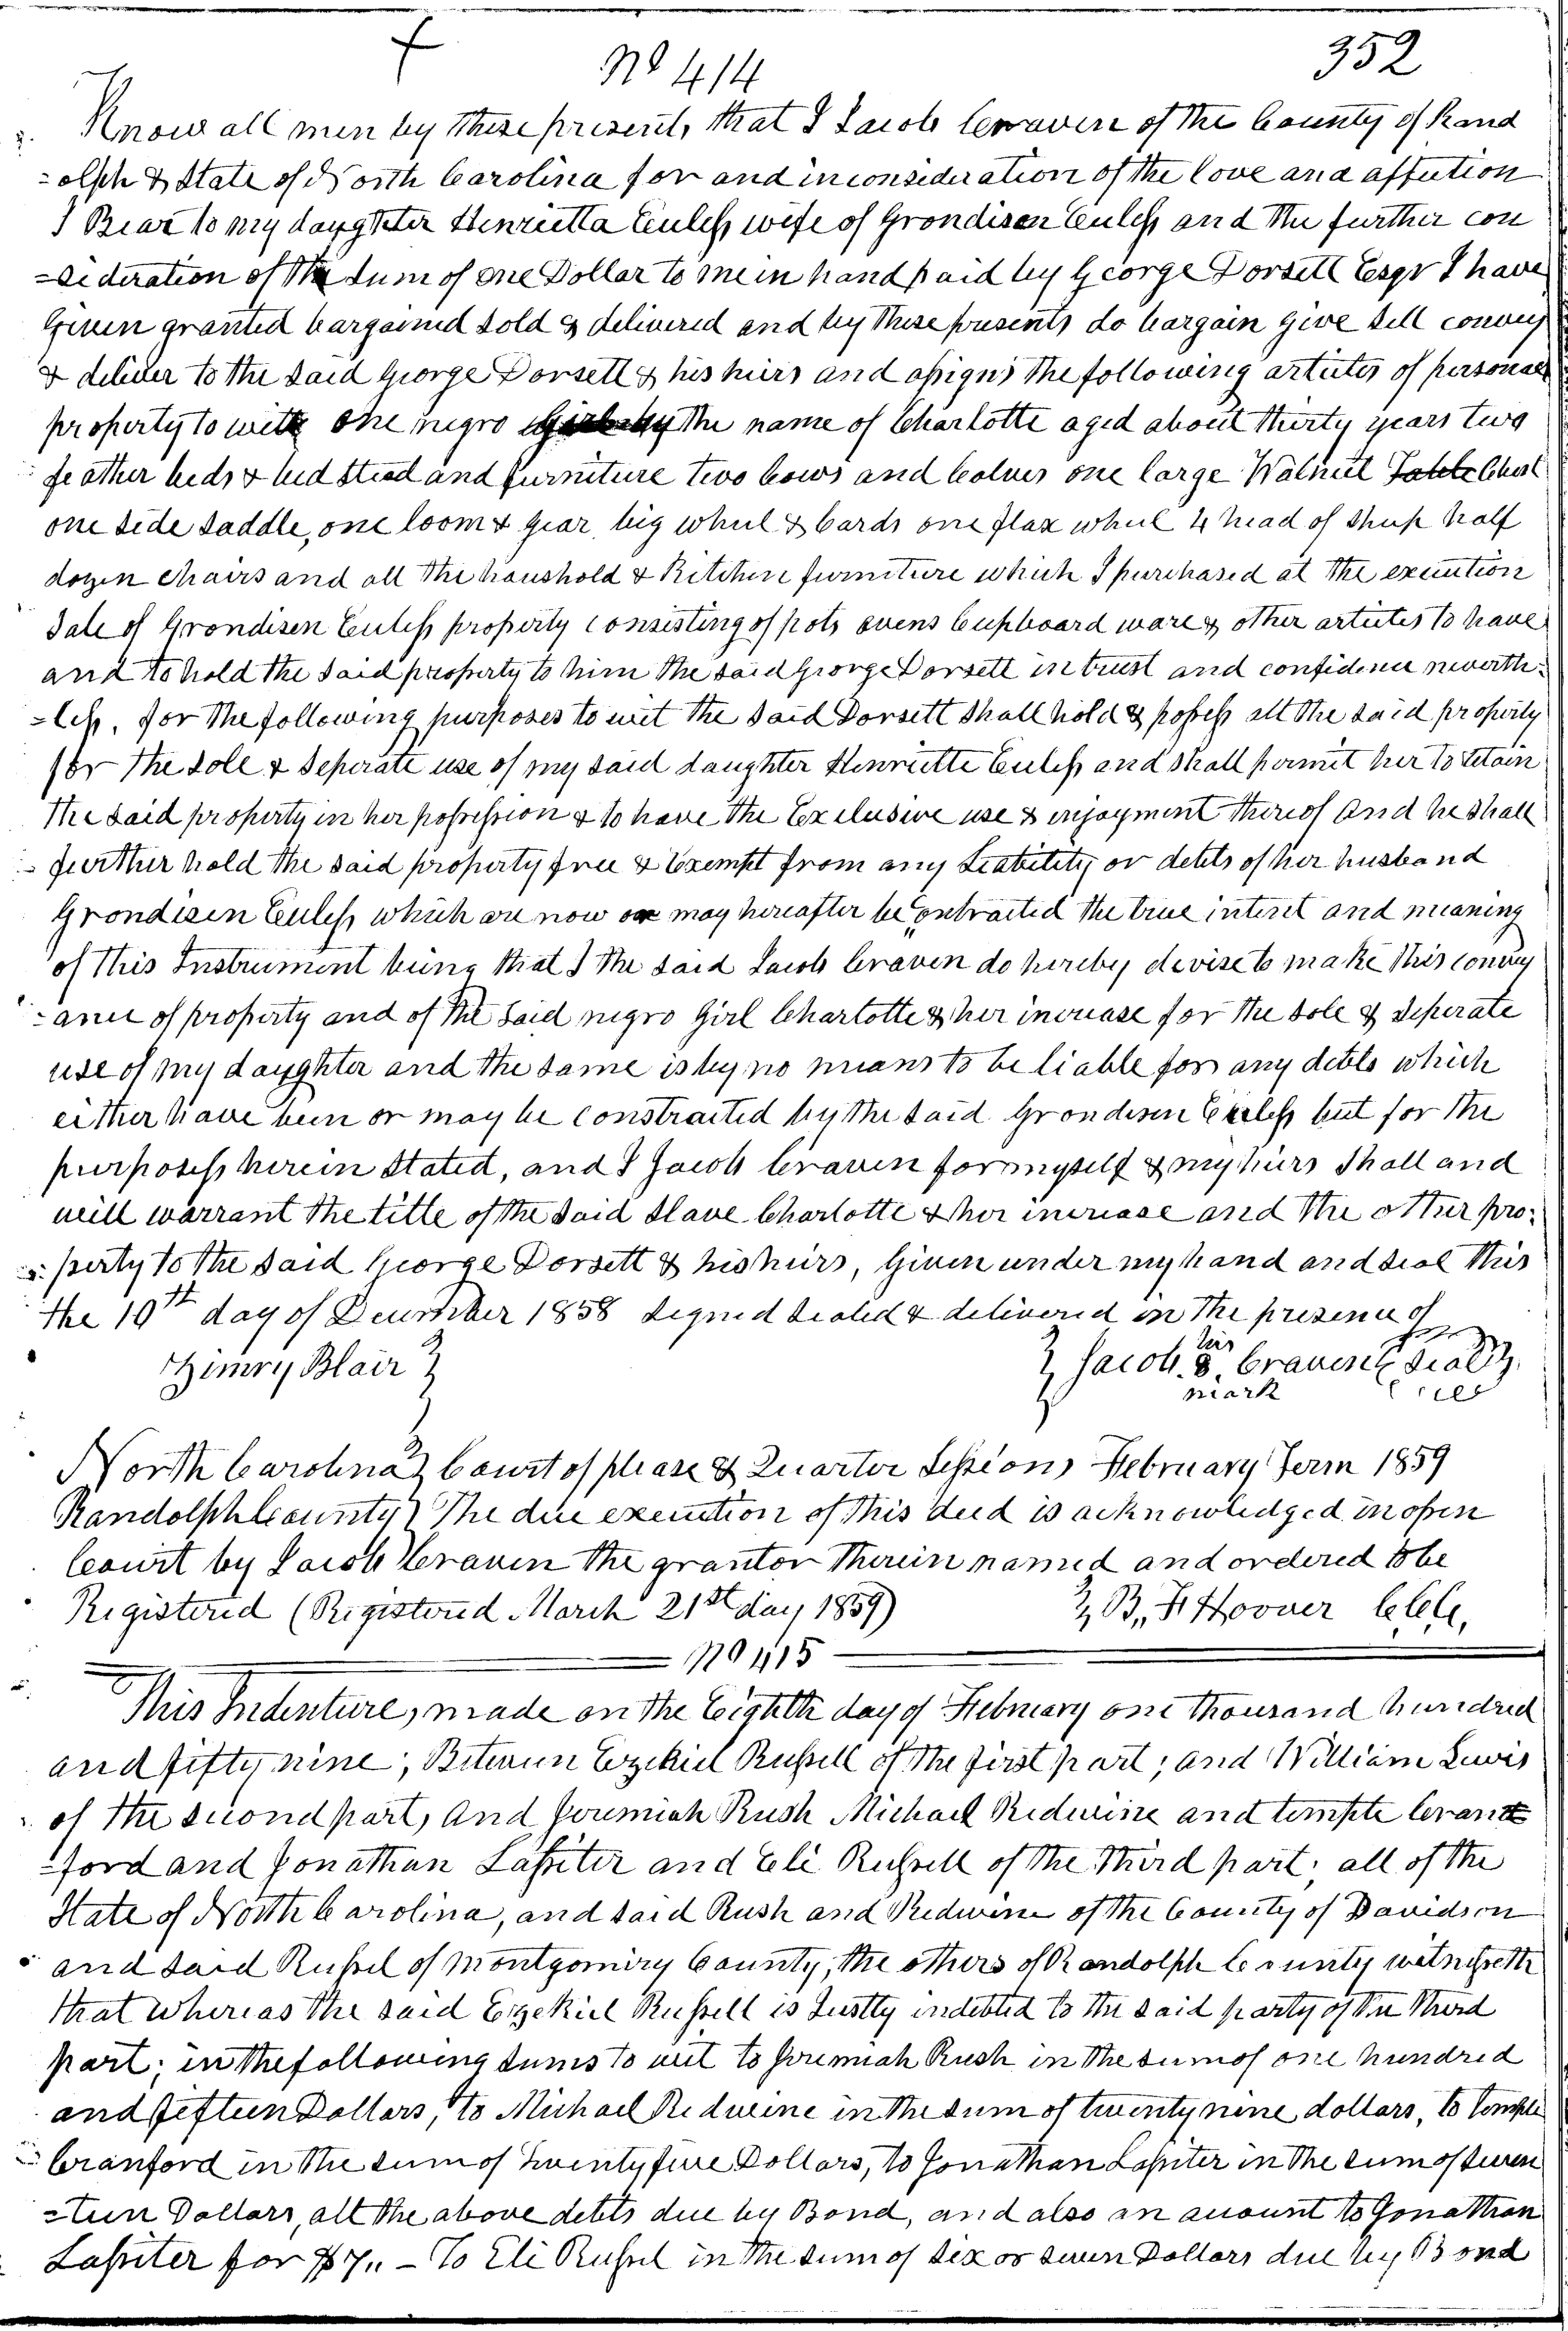 No 414
352
Know all men by these presents, that I Jacob Craven of the County of Rand
-olph & State of North Carolina for and in consideration of the love and affection
I Bear to my daughter Henrietta Euless wife of Grondisen Euless and the further con
-sideration of the sum of one Dollar to me in hand paid by George Dorsett Esqr I have
Given granted bargained sold & delivered and by these presents do bargain give sell convey
& deliver to the said George Dorsett & his heirs and assigns the following articles of personal
property to witt one negro Girl by the name of Charlotte aged about thirty years two
feather beds & bed stead and furniture two cows and Calves one large Walnut Table Chest
one side saddle, one loom & gear big wheel & Cards one flax wheel 4 head of sheep half
dozen chairs and all the houshold & Kitchen furniture which I purchased at the execution
Sale of Grondisen Euless property consisting of pots ovens Cupboard ware & other articles to have
and to hold the said property to him the said George Dorsett in trust and confidence neverth-
-less, for the following purposes to wit the said Dorsett shall hold & possess all the said property
for the sole & seperate use of my said daughter Henriette Euless and shall permit her to retain
the said property in her possession & to have the Exclusive use & enjoyment thereof and he shall
further hold the said property free & Exempt from any Liability or debts of her husband
Grondisen Euless which are now or may hereafter be contracted the true interet and meaning
of this Instrument being that I the said Jacob Craven do hereby devise to make this convey
-ance of property and of the said negro Girl Charlotte & her increase for the sole & seperate
use of my daughter and the same is by no means to be liable for any debts which
either have been or may be constracted by the said Grondisen Euless but for the
purposess herein stated, and I Jacob Craven for myself & my heirs shall and
will warrant the title of the said slave Charlotte & her increase and the other pro-
perty to the said George Dorsett & his heirs, Given under my hand and seal this
the 10th day of December 1858 signed sealed & delivered in the presence of
Henry Blair
his
Jacob 8 Craven Seal
mark
North Carolina Court of please & Quarter Sessions February Term 1859
Randolph County The due execution of this deed is acknowledged in open
Court by Jacob Craven the grantor therein named and ordered to be
Registered (Registered March 21st day 1859)
B. F. Hoover C.C.C.
No 415
This Indenture, made on the Eighth day of February one thousand hundred
and fifty nine, Between Ezekiel Russell of the first part, and William Lewis
of the second part, and Jeremiah Rush Michael Redwine and temple Cran
-ford and Jonathan Lassiter and Eli Russell of the third part, all of the
State of North Carolina, and said Rush and Redwine of the County of Davidson
and said Russel of Montgomery County, the others of Randolph County witnesseth
that whereas the said Ezekiel Russell is Justly indebted to the said party of the third
part, in the following sums to wit to Jeremiah Rush in the sum of one hundred
and fifteen Dollars, to Michael Redwine in the sum of twenty nine dollars, to Temple
Cranford in the sum of Twenty five Dollars, to Jonathan Lassiter in the sum of seven
-teen Dollars, all the above debts due by Bond, and also an account to Jonathan
Lassiter for $7.. - To Eli Russel in the sum of six or seven Dollars due by Bond